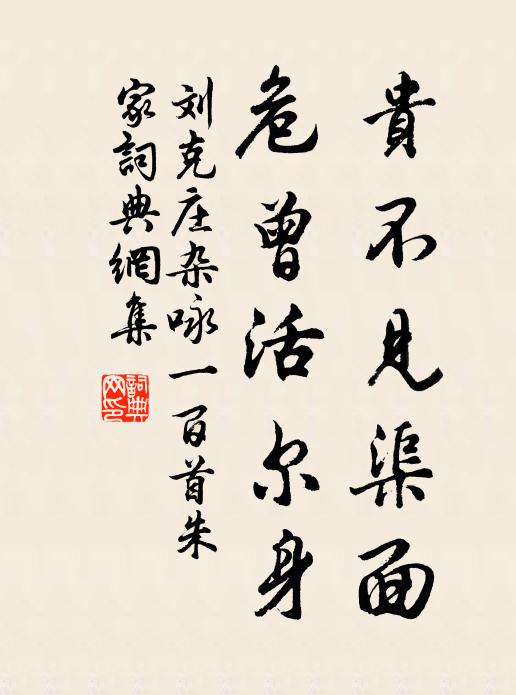 貴不見渠面
危曾活尔身
刘克庄杂咏一百首朱
家詞典網集
詞典网印